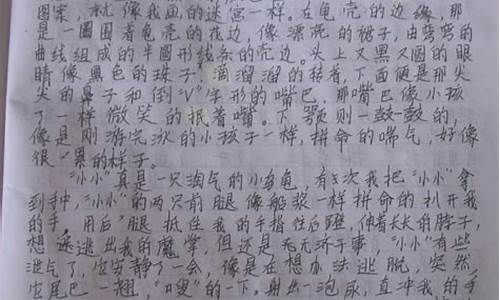 图案，就像我画的迷宫一样。在龟壳的边缘，那
是一圈围着龟壳的花边，像漂亮的裙子，由弯弯的
曲线组成的半圆形线条的壳边。头上又黑又圆的眼
睛像黑色的珠子，滴溜溜的转着，下面便是那尖
尖的鼻子和倒"V"字形的嘴巴，那嘴巴像小孩
子一样微笑的抿着嘴。下颚则一鼓一鼓的，
像是刚游完泳的小孩子一样，拼命的喘气，好像
很累的样子。
"小小"真是一只淘气的小乌龟，有一次我把"小小"拿
到手中，"小小"的两只前腿像船桨一样拼命的扒开我
的手，用后腿抵住我的手指往后蹬，伸着长长的脖子，
想逃出我的魔掌，但还是无无济于事。"小小"有些
泄气了，它安静了一会，像是在想办法逃脱，突然
它尾巴一翘，"嗖"的一下，射出一泡尿，直冲我的手